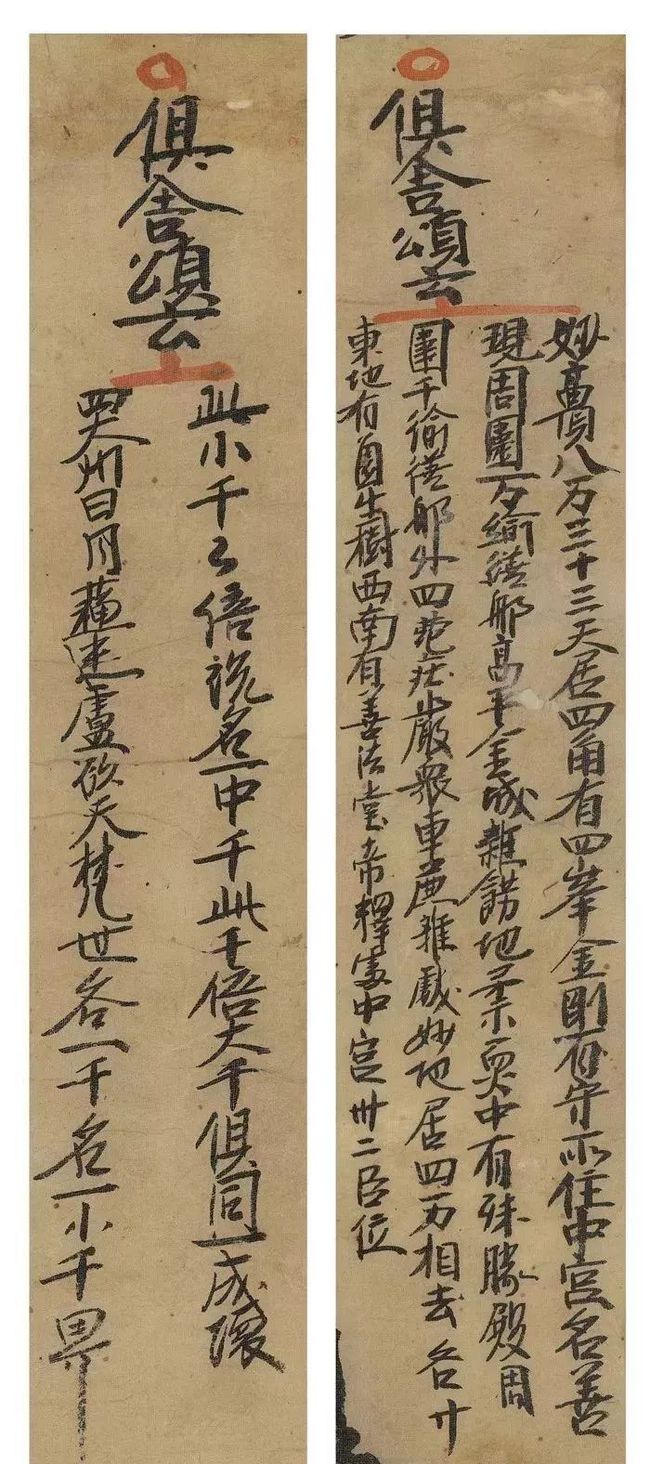 俱舍頌云
妙高頂八万三十三天居四角有四峯金剛有守所住中宮名善
現周圍万緰繕那高千金城雜餝地柔耎中有殊勝殿周
圍千偷繕那外四苑庄嚴衆車麁雜戲妙地居四方相去各廾
東北有圓生樹西南有善法堂帝釋處中宮卅二臣位
俱舍頌云
四大州日月蘇迷盧欲天梵世各一千名一小千界
此小千々倍說名一中千此千倍大千俱同一成壞